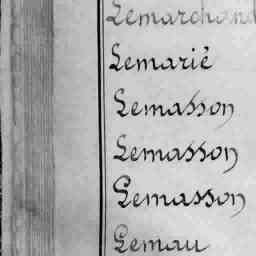 Lemarchand
Lemarié
Lemasson
Lemasson
Lemasson
Lemau